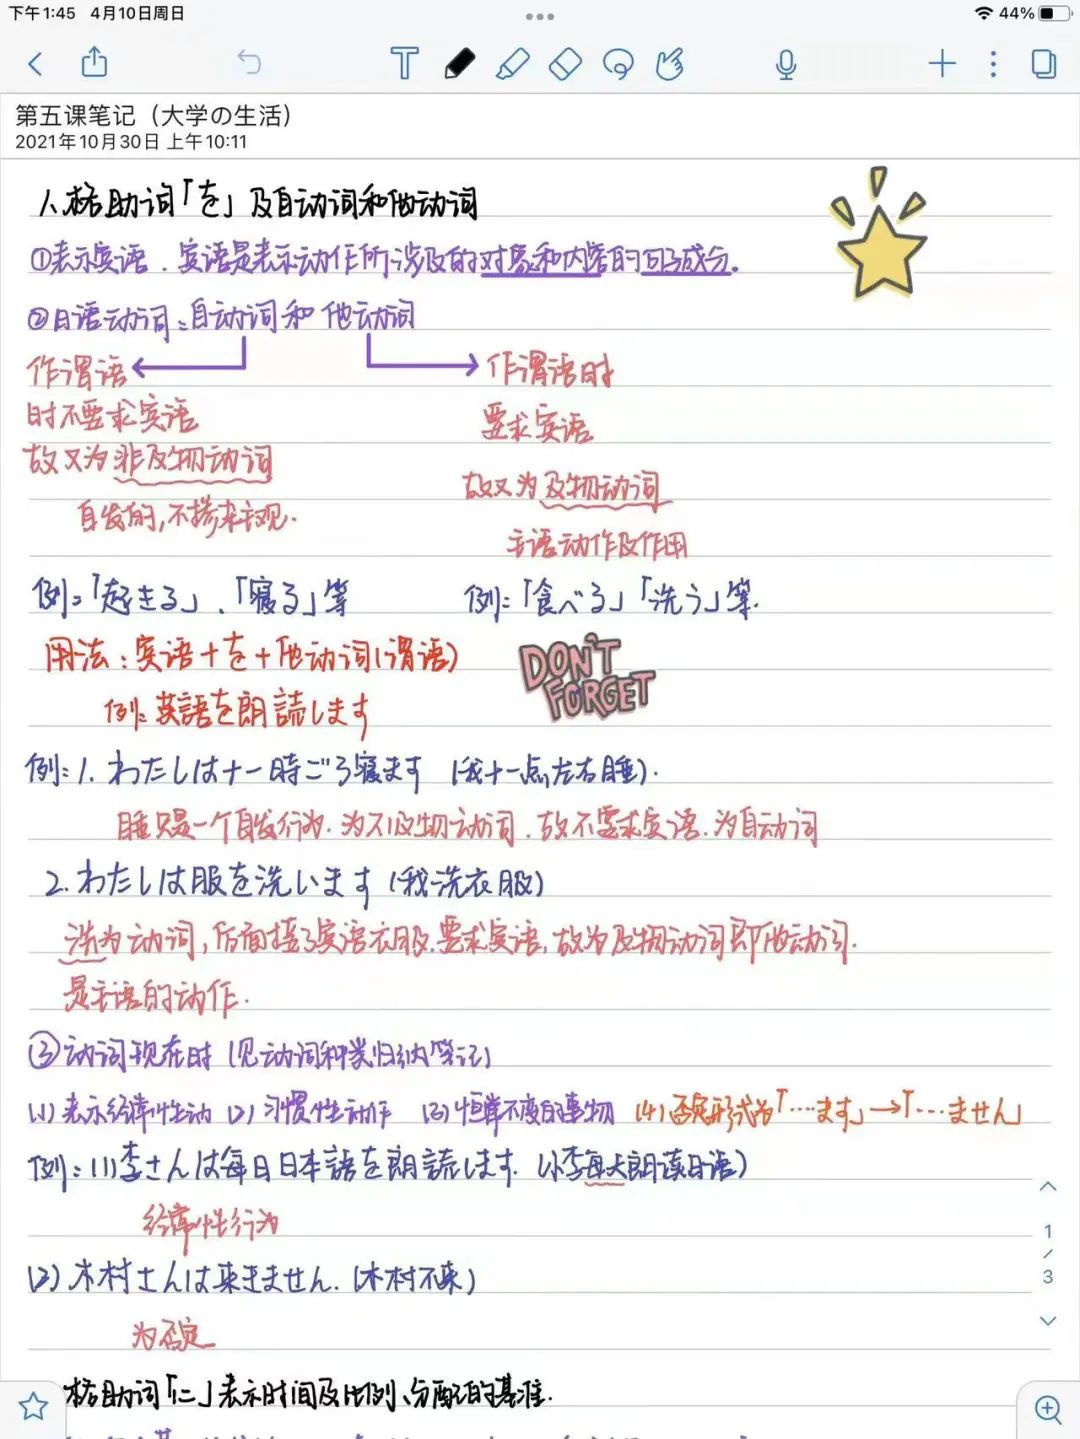 下午1:45 4月10日周日
44%
第五课笔记（大学の生活）
2021年10月30日 上午10:11
1、格助词「を」及自动词和他动词
①表示宾语．宾语是表示动作所涉及的对象和内容的句子成分。
②日语动词：自动词和他动词
作谓语 作谓语时
时不要求宾语 要求宾语
故又为非及物动词 故又为及物动词
自发的，不掺杂主观． 主语动作及作用
例：「起きる」、「寝る」等 例：「食べる」「洗う」等．
用法：宾语＋を＋他动词（谓语）
DON'T FORGET
例：英語を朗読します
例：1．わたしは十一時ごろ寝ます（我十一点左右睡）．
睡只是一个自发行为．为不及物动词．故不要求宾语．为自动词
2．わたしは服を洗います（我洗衣服）
洗为动词，后面接了宾语衣服．要求宾语，故为及物动词即他动词．
是主语的动作．
③动词现在时（见动词种类归纳笔记）
(1)表示经常性动 (2)习惯性动作 (3)恒常不变的事物 (4)否定形式为「…ます」→「…ません」
例：(1)李さんは毎日日本語を朗読します．（小李每天朗读日语）
经常性行为
(2)木村さんは来きません．（木村不来）
为否定
1
/
3
格助词「に」表示时间及比例、分配的基准．